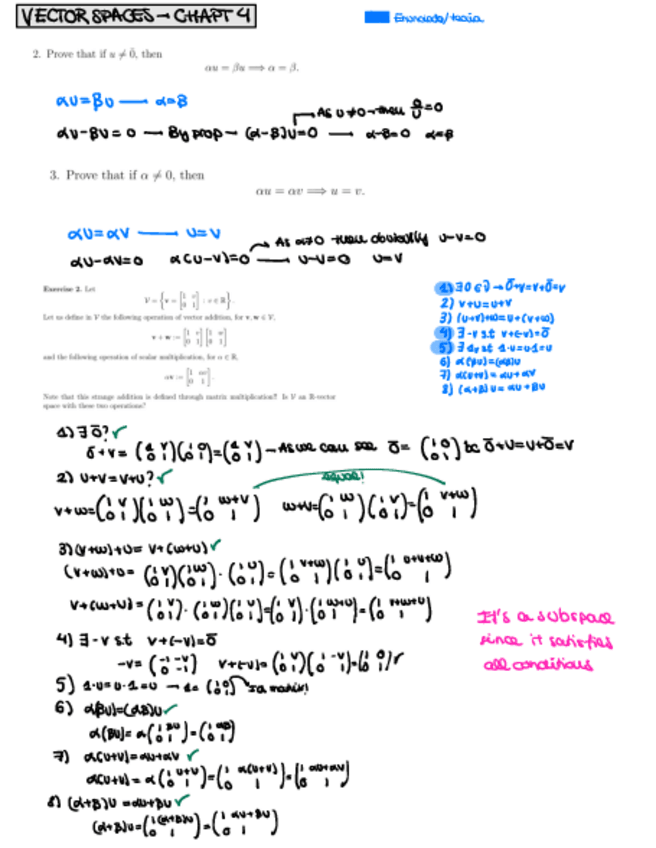 VECTOR SPACES → CHAPT 4
Enunciado/teoría
2. Prove that if u ≠ 0̄, then
αu = βu ⟹ α = β.
αu=βu — α=β
As u≠0 → then 0/u=0
αu-βu=0 — By prop → (α-β)u=0 — α-β=0 α=β
3. Prove that if α ≠ 0, then
αu = αv ⟹ u = v.
αu=αv — u=v
As α≠0 then obviously u-v=0
αu-αv=0 α(u-v)=0 — u-v=0 u=v
Exercise 2. Let
V = { v = [1 v; 0 1] : v ∈ ℝ }.
Let us define in V the following operation of vector addition, for v, w ∈ V,
v + w := [1 v; 0 1] [1 w; 0 1]
and the following operation of scalar multiplication, for α ∈ ℝ,
αv := [1 αv; 0 1].
Note that this strange addition is defined through matrix multiplication! Is V an ℝ-vector
space with these two operations?
1) ∃ 0̄ ∈ V → 0̄+v=v+0̄=v
2) v+u=u+v
3) (u+v)+w=u+(v+w)
4) ∃ -v s.t v+(-v)=0̄
5) ∃ 1 s.t 1·u=u·1=u
6) α(βu)=(αβ)u
7) α(u+v)=αu+αv
8) (α+β)u=αu+βu
1) ∃ 0̄? ✓
0̄+v = (1 v; 0 1)(1 0; 0 1)=(1 v; 0 1) → As we can see 0̄ = (1 0; 0 1) bc 0̄+v=v+0̄=v
2) u+v=v+u? ✓
equal!
v+w=(1 v; 0 1)(1 w; 0 1)=(1 w+v; 0 1) w+v=(1 w; 0 1)(1 v; 0 1)=(1 v+w; 0 1)
3) (v+w)+u= v+(w+u) ✓
(v+w)+u= (1 v; 0 1)(1 w; 0 1)·(1 u; 0 1)=(1 v+w; 0 1)(1 u; 0 1)=(1 u+v+w; 0 1)
v+(w+u)=(1 v; 0 1)·(1 w; 0 1)(1 u; 0 1)=(1 v; 0 1)·(1 w+u; 0 1)=(1 v+w+u; 0 1)
It's a subspace
since it satisfies
all conditions
4) ∃ -v s.t v+(-v)=0̄
-v= (-1 -v; 0 -1) v+(-v)=(1 v; 0 1)(1 -v; 0 1)=(1 0; 0 1) ✓
5) 1·u=u·1=u → 1=(1 0; 0 1) matrix!
6) α(βu)=(αβ)u ✓
α(βu)= α(1 βu; 0 1)=(1 αβ; 0 1)
7) α(u+v)=αu+αv ✓
α(u+v) = α(1 u+v; 0 1)=(1 α(u+v); 0 1)=(1 αu+αv; 0 1)
8) (α+β)u =αu+βu ✓
(α+β)u=(1 (α+β)u; 0 1)=(1 αu+βu; 0 1)